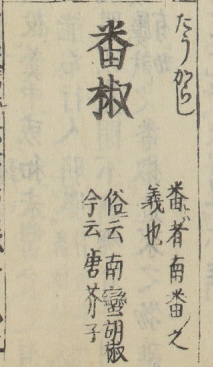 たうがらし
番椒
番者南番之
義也
俗云南蠻胡椒
今云唐芥子